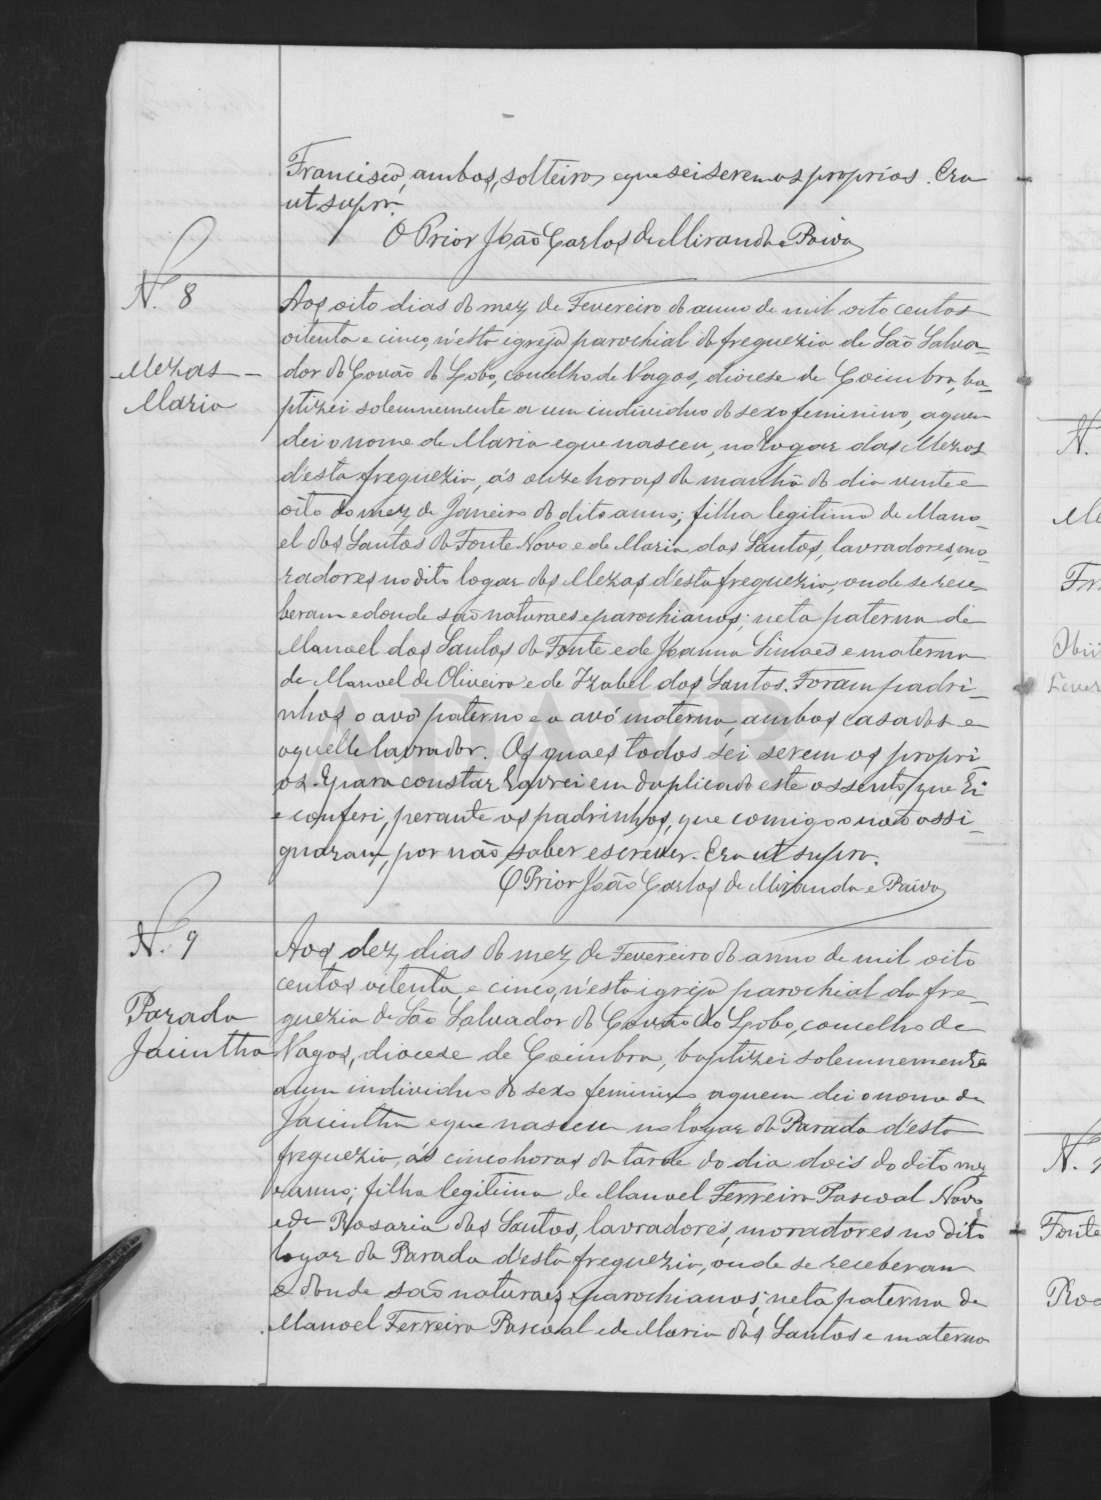 Francisco, ambos, solteiros, e que sei serem os proprios. Era
ut supra.
O Prior João Carlos de Miranda e Paiva
N. 8
Mezas
Maria
Aos oito dias do mez de Fevereiro do anno de mil oito centos
oitenta e cinco, n'esta igreja parochial da freguezia de São Salva-
dor do Covão do Lobo, concelho de Vagos, diocese de Coimbra, ba-
ptizei solemnemente a um individuo do sexo feminino, a quem
dei o nome de Maria e que nasceu, no logar das Mezas
d'esta freguezia, ás onze horas da manhã do dia vinte e
oito do mez de Janeiro do dito anno; filha legitima de Mano-
el dos Santos da Fonte Novo e de Maria dos Santos, lavradores, mo-
radores no dito logar das Mezas d'esta freguezia, onde se rece-
beram e donde são naturaes e parochianos; neta paterna de
Manoel dos Santos da Fonte e de Joanna Simões e materna
de Manoel de Oliveira e de Izabel dos Santos. Foram padri-
nhos o avô paterno e a avó materna, ambos casados e
aquelle lavrador. Os quaes todos sei serem os propri
os. E para constar lavrei em duplicado este assento, que li
e conferi, perante os padrinhos, que comigo o não assi-
gnaram, por não saber escrever. Era ut supra.
O Prior João Carlos de Miranda e Paiva
N. 9
Parada
Jacintha
Aos dez dias do mez de Fevereiro do anno de mil oito
centos oitenta e cinco, n'esta igreja parochial da fre-
guezia de São Salvador do Covão do Lobo, concelho de
Vagos, diocese de Coimbra, baptizei solemnemente
a um individuo do sexo feminino a quem dei o nome de
Jacintha e que nasceu no logar da Parada d'esta
freguezia, ás cinco horas da tarde do dia dois do dito mez
e anno; filha legitima de Manoel Ferreira Pascoal Novo
e de Rosaria dos Santos, lavradores, moradores no dito
logar da Parada d'esta freguezia, onde se receberam
e donde são naturaes e parochianos; neta paterna de
Manoel Ferreira Pascoal e de Maria dos Santos e materna
N.
Fonte